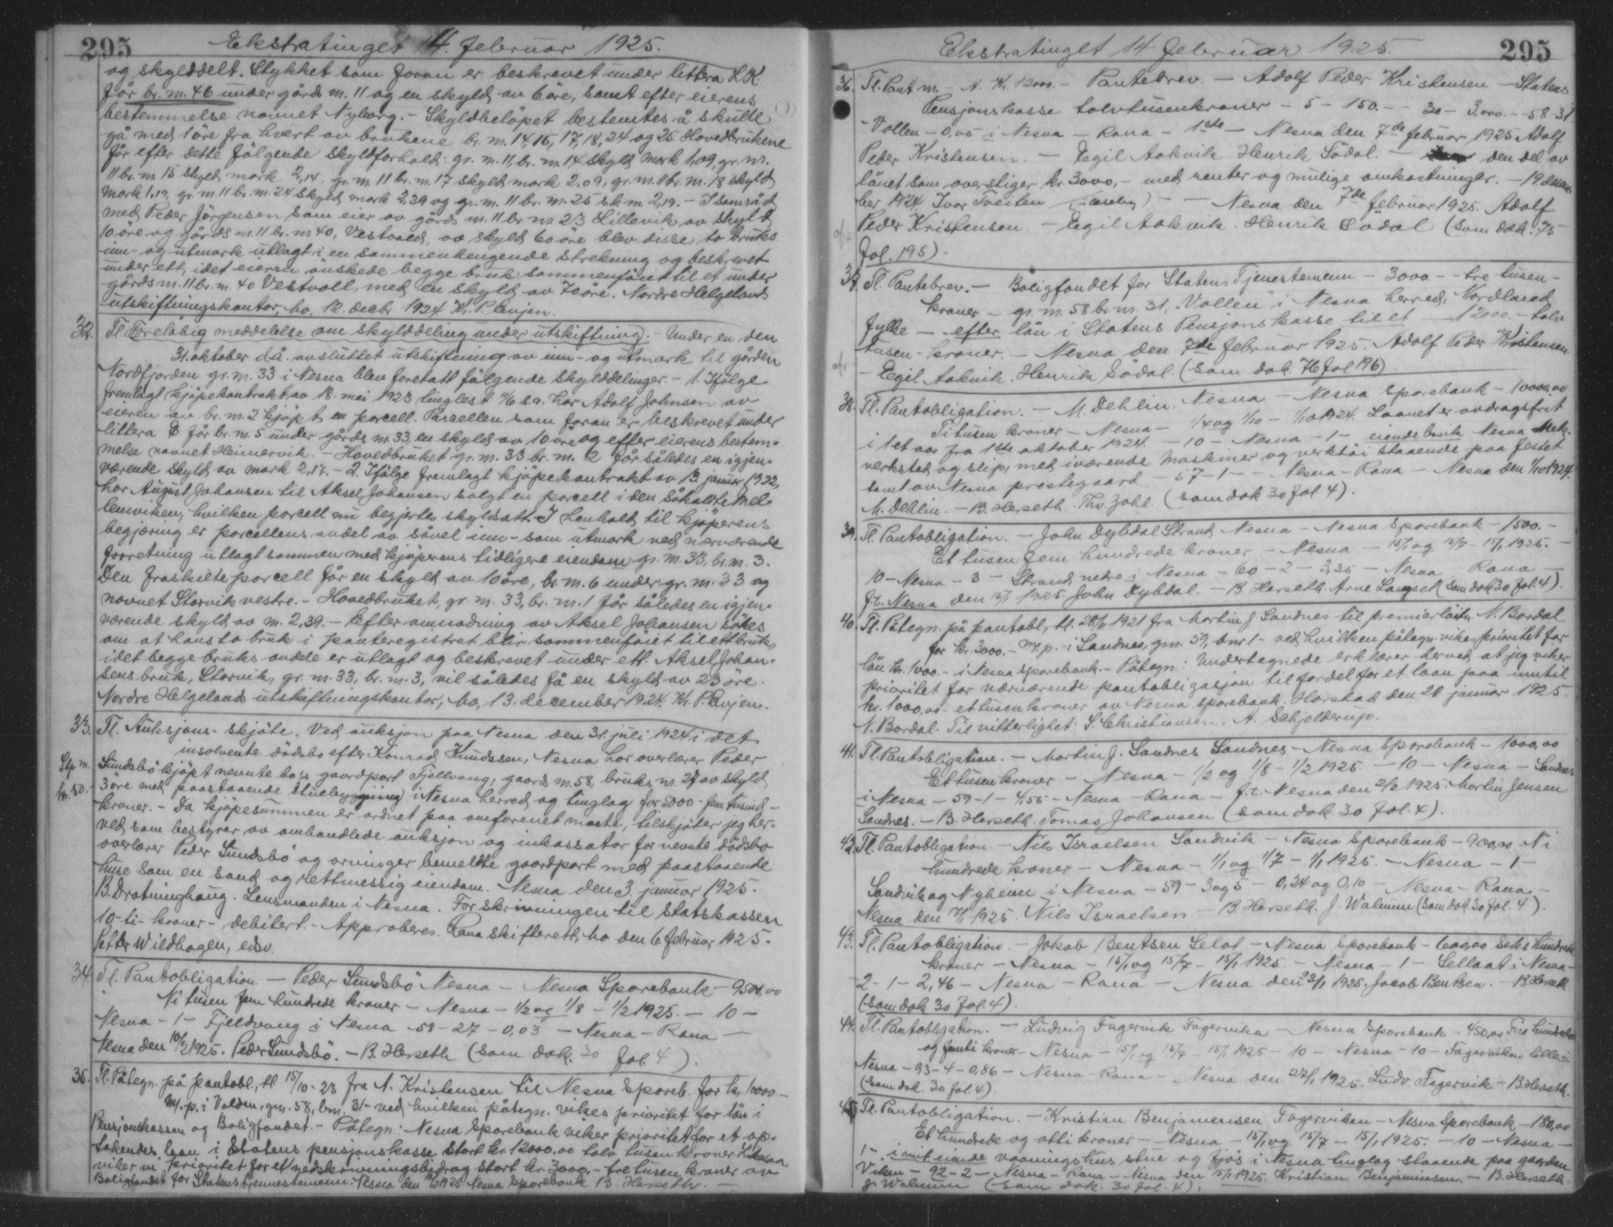 295 Ekstratinget 14. februar 1925.
og skylddelt. Stykket som foran er beskrevet under littera K.K.
får br. nr. 46 under gårds nr. 11 og en skyld av 6 öre, samt efter eierens
bestemmelse navnet Nyborg. - Skyldbelöpet bestemtes å skulle
gå med 1 öre fra hvert av brukene br. nr. 14, 16, 17, 18, 24 og 25. Hovedbrukene
får efter dette fölgende skyldforhold: gr. nr. 11, br. nr. 14 skyld mark 1,09, gr. nr.
11 br. nr. 15 skyld mark 2,14. gr. nr 11 br. nr. 17 skyld mark 2,09, gr. nr. 11 br. nr. 18 skyld
mark 1,19, gr. nr. 11 br. nr. 24 skyld mark 2,39 og gr. nr. 11 br. nr. 25 sk. m 2,19. - I samråd
med Peder Jörgensen som eier av gårds nr. 11 br. nr 23 Lillevik av skyld
10 öre og gårds nr. 11 br. nr 40, Vestvold, av skyld 60 öre blev disse to bruks
inn- og utmark utlagt i en sammenhengende strekning og beskrevet
under ett, idet eieren önskede begge bruk sammenföiet til et under
gårds nr. 11 br. nr. 40 Vestvoll, med en skyld av 70 öre. Nordre Helgeland
utskiftningskontor, Mo, 12. decb. 1924 Kr. P. Enjem.
32. Tl. Foreløbig meddelelse om skylddeling under utskiftning. - Under en den
31. oktober då. avsluttet utskiftning av inn- og utmark til gården
Nordfjorden gr. nr. 33 i Nesna blev foretatt fölgende skylddelinger. - 1. Ifölge
fremlagt kjöpekontrakt av 18. mai 1923 tinglest s.a. har Adolf Johnsen av
eieren av br. nr. 2 kjöpt en parcell. Parcellen som foran er beskrevet under
littera E får br. nr. 5 under gårds nr. 33, en skyld av 10 öre og efter eierens bestem-
melse navnet Heimervik. - Hovedbruket gr. nr. 33 br. nr. 2 får således en igjen-
værende skyld av mark 2,17. - 2. Ifölge fremlagt kjöpekontrakt av 13. januar 1922,
har August Johansen til Aksel Johansen solgt en parcell i den såkaldte Mel-
lemviken, hvilken parcell nu begjertes skyldsatt. I henhold til kjöperens
begjæring er parcellens andel av såvel inn- som utmark ved nærværende
forretning utlagt sammen med kjöperens tidligere eiendom gr. nr. 33, br. nr. 3.
Den fraskilte parcell får en skyld av 10 öre, br. nr. 6 under gr. nr. 33 og
navnet Storvik vestre. - Hovedbruket, gr. nr. 33, br. nr. 1 får således en igjen-
værende skyld av m. 2,39. - Efter anmodning av Aksel Johansen sökes
om at hans to bruk i panteregistret blir sammenföiet til ett bruk,
idet begge bruks andele er utlagt og beskrevet under ett. Aksel Johan-
sens bruk, Storvik, gr. nr. 33, br. nr. 3, vil således få en skyld av 23 öre.
Nordre Helgeland utskiftningskontor, Mo, 13. december 1924. Kr. P. Enjem.
33. Tl. Auksjons-skjöte. Ved auksjon paa Nesna den 31. juli 1924 i det
insolvente dödsbo efter Konrad Knudssen, Nesna har overlærer Peder
Stp. m. Sundsbö kjöpt nevnte bo's gaardpart Fjellvang, gaards nr. 58, bruks nr. 27 av skyld
kr. 50. - 3 öre med paastaaende stuebygning i Nesna herred og tinglag for 5000 - fem tusind -
kroner. - Da kjöpesummen er ordnet paa omforenet maate, tilskjöter jeg her-
ved som bestyrer av ombandlede auksjon og inkassator for nevnte dödsbo
overlærer Peder Sundsbö og arvinger bemeldte gaardpart med paastaaende
huse som en sand og rettmessig eiendom. Nesna den 3 januar 1925.
B. Dratninghaug. Lensmanden i Nesna. For skrivningen til Statskassen
10 - ti - kroner - debitert. - Approberes. Rana skifterett, Mo den 6 februar 1925.
Petter Wildhagen, edsv.
34. Tl. Pantobligation. - Peder Sundsbö Nesna - Nesna Sparebank - 9500,00
Ni tusen fem hundrede kroner - Nesna - 1/2 og 1/8 - 1/2 1925. - 10 -
Nesna - 1 - Fjeldvang i Nesna - 58 - 27 - 0,03 - Nesna - Rana -
Nesna den 10/2 1925. Peder Sundsbö. - B. Herseth (som dok. 30 fol 4).
35. Tl. Påtegn. på pantobl, tl 15/10 - 23 fra A. Kristensen til Nesna Spareb. for kr. 1000 -
m. p. i Volden, gnr. 58, bnr. 31 - ved hvilken påtegn. vikes prioritet for lån i
Pensjonskassen og Boligfondet. - Påtegn: Nesna Sparebank viker prioritet for et op-
takendes laan i Statens pensjonskasse stort kr. 12000,00 tolv tusen kroner. Likesaa
viker vi prioritet for et nedskrivningsbidrag stort kr. 3000, - tre tusen kroner av
Boligfondet for Statens tjenestemenn. Nesna den 1925. Nesna Sparebank B. Herseth. -
Ekstratinglet 14 februar 1925. 295
36. Tl. Pant m. - A. K. 12000. - Pantebrev. - Adolf Peder Kristensen - Statens
Pensjonskasse tolvtusenkroner - 5 - 150. - - 30 - 3000. - 58 - 31
- Vollen - 0,05 - i Nesna - Rana - 1ste - Nesna den 7de februar 1925 Adolf
Peder Kristensen. - Egil Aakvik. Henrik Södal. - den del av
lånet som overstiger kr. 3000, - med renter og mulige omkostninger. - 19 decem-
ber 1924. Ivar Tveiten - - Nesna den 7de februar 1925. Adolf
Peder Kristensen. - Egil Aakvik. Henrik Södal (Som dok. 75
fol. 195) -
37. Tl. Pantebrev. - Boligfondet for Statens Tjenestemenn - 3000 - - tre tusen -
kroner - gr. nr. 58 br. nr. 31, "Vollen" i Nesna herred, Nordland
fylke - efter lån i Statens Pensjonskasse til et 12000. - tolv
tusen - kroner. - Nesna den 7de februar 1925. Adolf Peder Kristensen
- Egil Aakvik. Henrik Södal. (som dok. 76 fol 196).
38. Tl. Pantobligation. - M. Dehlin. Nesna - Nesna Sparebank - 10000,00
Titusen kroner - Nesna - 1/4 og 1/10 - 1/10 1924. Laanet er avdragsfrit
i 1 et aar fra 1ste oktober 1924. - 10 - Nesna - 1 - eiendebruk Nesna Mek.
verksted og slip, med iværende maskiner og verktöi staaende paa festet
tomt av Nesna prestegaard - 57 - 1 - - Nesna - Rana - Nesna den 1924.
M. Dehlin. - B. Herseth. Thv. Zahl. (som dok 30 fol 4).
39. Tl. Pantobligation. - John Dybdal Strand Nesna - Nesna Sparebank - 1500. -
Et tusen fem hundrede kroner - Nesna - 15/1 og 15/7 - 15/1 1925. -
10 - Nesna - 3 - Strand nedre i Nesna - 60 - 2 - 2,25 - Nesna Rana -
f.t. Nesna den 15/1 1925 John Dybdal. - B. Herseth. Arne Langset (som dok 30 fol. 4).
40. Tl. Påtegn. på pantobl, tl. 1921 fra Martin J Sandnes til premierlöitn. N. Bardal
for kr. 3000. - m. p. i Sandnes, gnr. 59, bnr 1 - ved hvilken påtegn. vikes prioritet for
lån kr. 1000. - i Nesna sparebank. - Påtegn: Undertegnede erklærer herved at jeg viker
prioritet for nærværende pantobligasjon til fordel for et laan paa inntil
kr. 1000,00 - et tusen kroner av Nesna sparebank. Harstad den 28 januar 1925.
N. Bardal. Til vitterlighet: S. Christiansen. A. Schjelderup.
41. Tl. Pantobligation. - Martin J. Sandnes Sandnes - Nesna Sparebank - 1000,00
Et tusen kroner - Nesna - 1/2 og 1/8 - 1/2 1925. - 10 - Nesna - Sandnes
i Nesna - 59 - 1 - 4,55 - Nesna - Rana - f.t. Nesna den 2/2 1925. Martin Jensen
Sandnes. - B. Herseth. Tomas Johansen (som dok 30 fol. 4).
42. Tl. Pantobligation - Nils Israelsen Sandvik - Nesna Sparebank - 900,00 Ni
hundrede kroner - Nesna - 1/1 og 1/7 - 1/1 1925. - Nesna - 1 -
Sandvik og Nyheim i Nesna - 59 - 3 og 5 - 0,24 og 0,10 - Nesna - Rana -
Nesna den 1925. Nils Israelsen. - B. Herseth. J. Walnum (som dok 30 fol. 4).
43. Tl. Pantobligation. - Jakob Bentsen Lelat - Nesna Sparebank - 600,00 Seks hundrede
kroner - Nesna - 15/1 og 15/7 - 15/1 1925. - Nesna - 1 - Lellaat i Nesna -
2 - 1 - 2,46 - Nesna - Rana - Nesna den 23/1 1925. Jacob - B. Herseth
(som dok 30 fol. 4).
44. Tl. Pantobligation. - Ludvig Fagervik Fagervika - Nesna Sparebank - 450,00 Fire hundrede
og femti kroner - Nesna - 15/1 og 15/7 - 15/1 1925 - 10 - Nesna - 10 - Fagerviken lille i
Nesna - 93 - 4 - 0,86 - Nesna Rana - Nesna den 1925. Ludv. Fagervik - B. Herseth.
(som dok. 30 fol 4).
45. Tl. Pantobligation. - Kristian Benjaminsen Fagerviken - Nesna Sparebank - 180,00
Et hundrede og otti kroner - Nesna - 15/1 og 15/7 - 15/1 1925. - 10 - Nesna -
1 - vaaningshus, stue og fjös i Nesna tinglag staaende paa gaarden
Viken - 92 - 2 - Nesna - Rana - Nesna den 15/1 1925. Kristian Benjaminsen. - B. Herseth.
J. Walnum (som dok. 30 fol. 4).